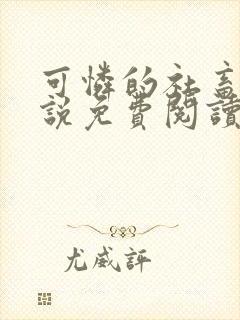 可憐的社畜
說免費閱讀
尤威評